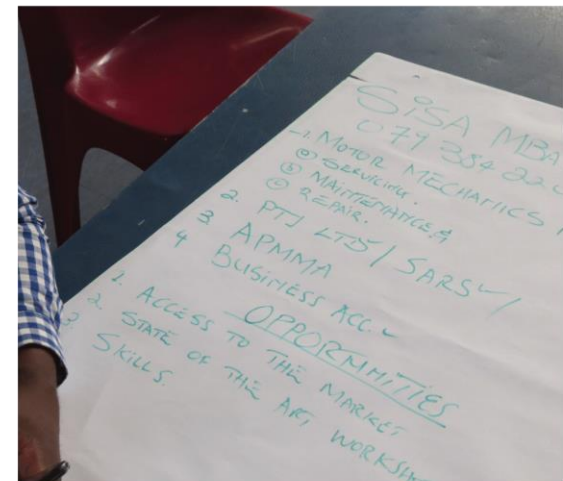 SiSA MBA
079 384 22
1. MOTOR MECHANICS
ⓐ SERVICING.
ⓑ MAINTENANCE &
ⓒ REPAIR.
2. PTJ LTD / SARS ✓ /
3 APMMA
4 BUSINESS ACC. ✓
OPPORMMITIES
1. ACCESS TO THE MARKET
2. STATE OF THE ART, WORKSH
3 SKILLS.